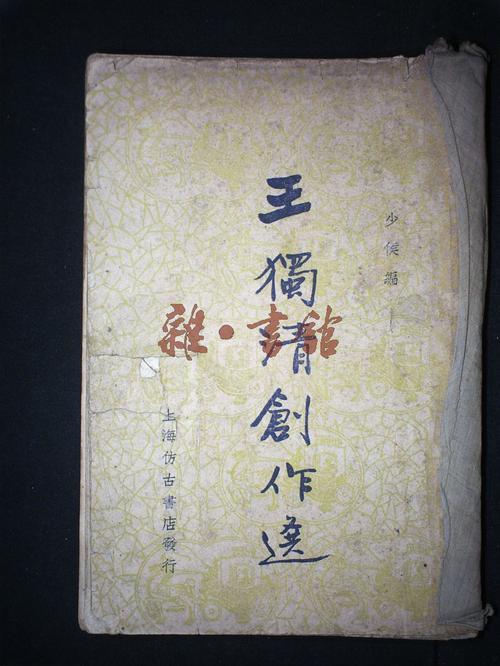 少侯編
王獨清創作選
雜·書館
上海仿古書店發行